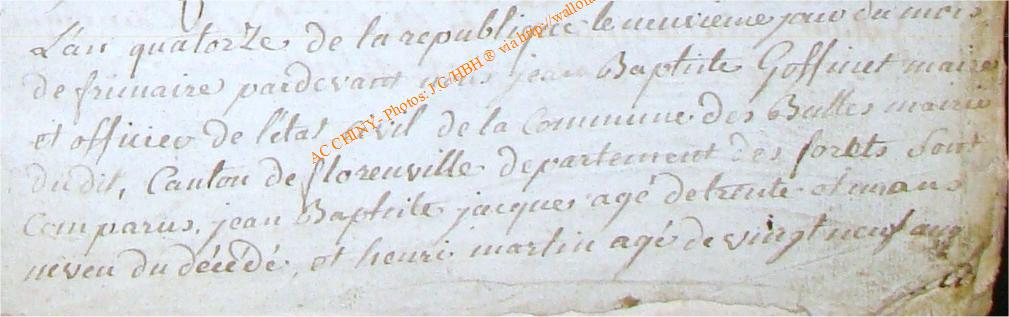 L'an quatorze de la republique le neuvieme jour du mois
de frimaire pardevant nous jean Baptiste Goffinet maire
et officier de l'etat civil de la Commune des Bulles mairie
dudit, Canton de florenville departement des forets Sont
Comparus, jean Baptiste jacques agé de trente et un ans
neveu du décédé, et henri martin agé de vingt neuf ans
AC CHINY - Photos: J C HBH ® via http://wallonia